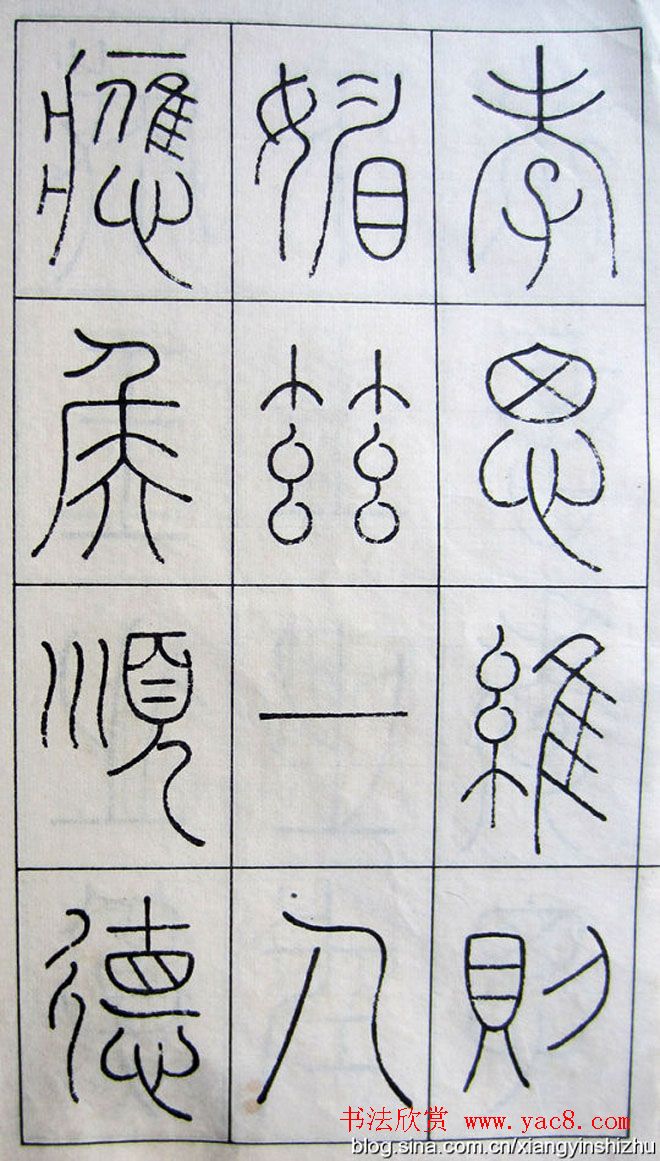 孝思維則
媚茲一人
應侯順德
书法欣赏 www.yac8.com
blog.sina.com.cn/xiangyinshizhu